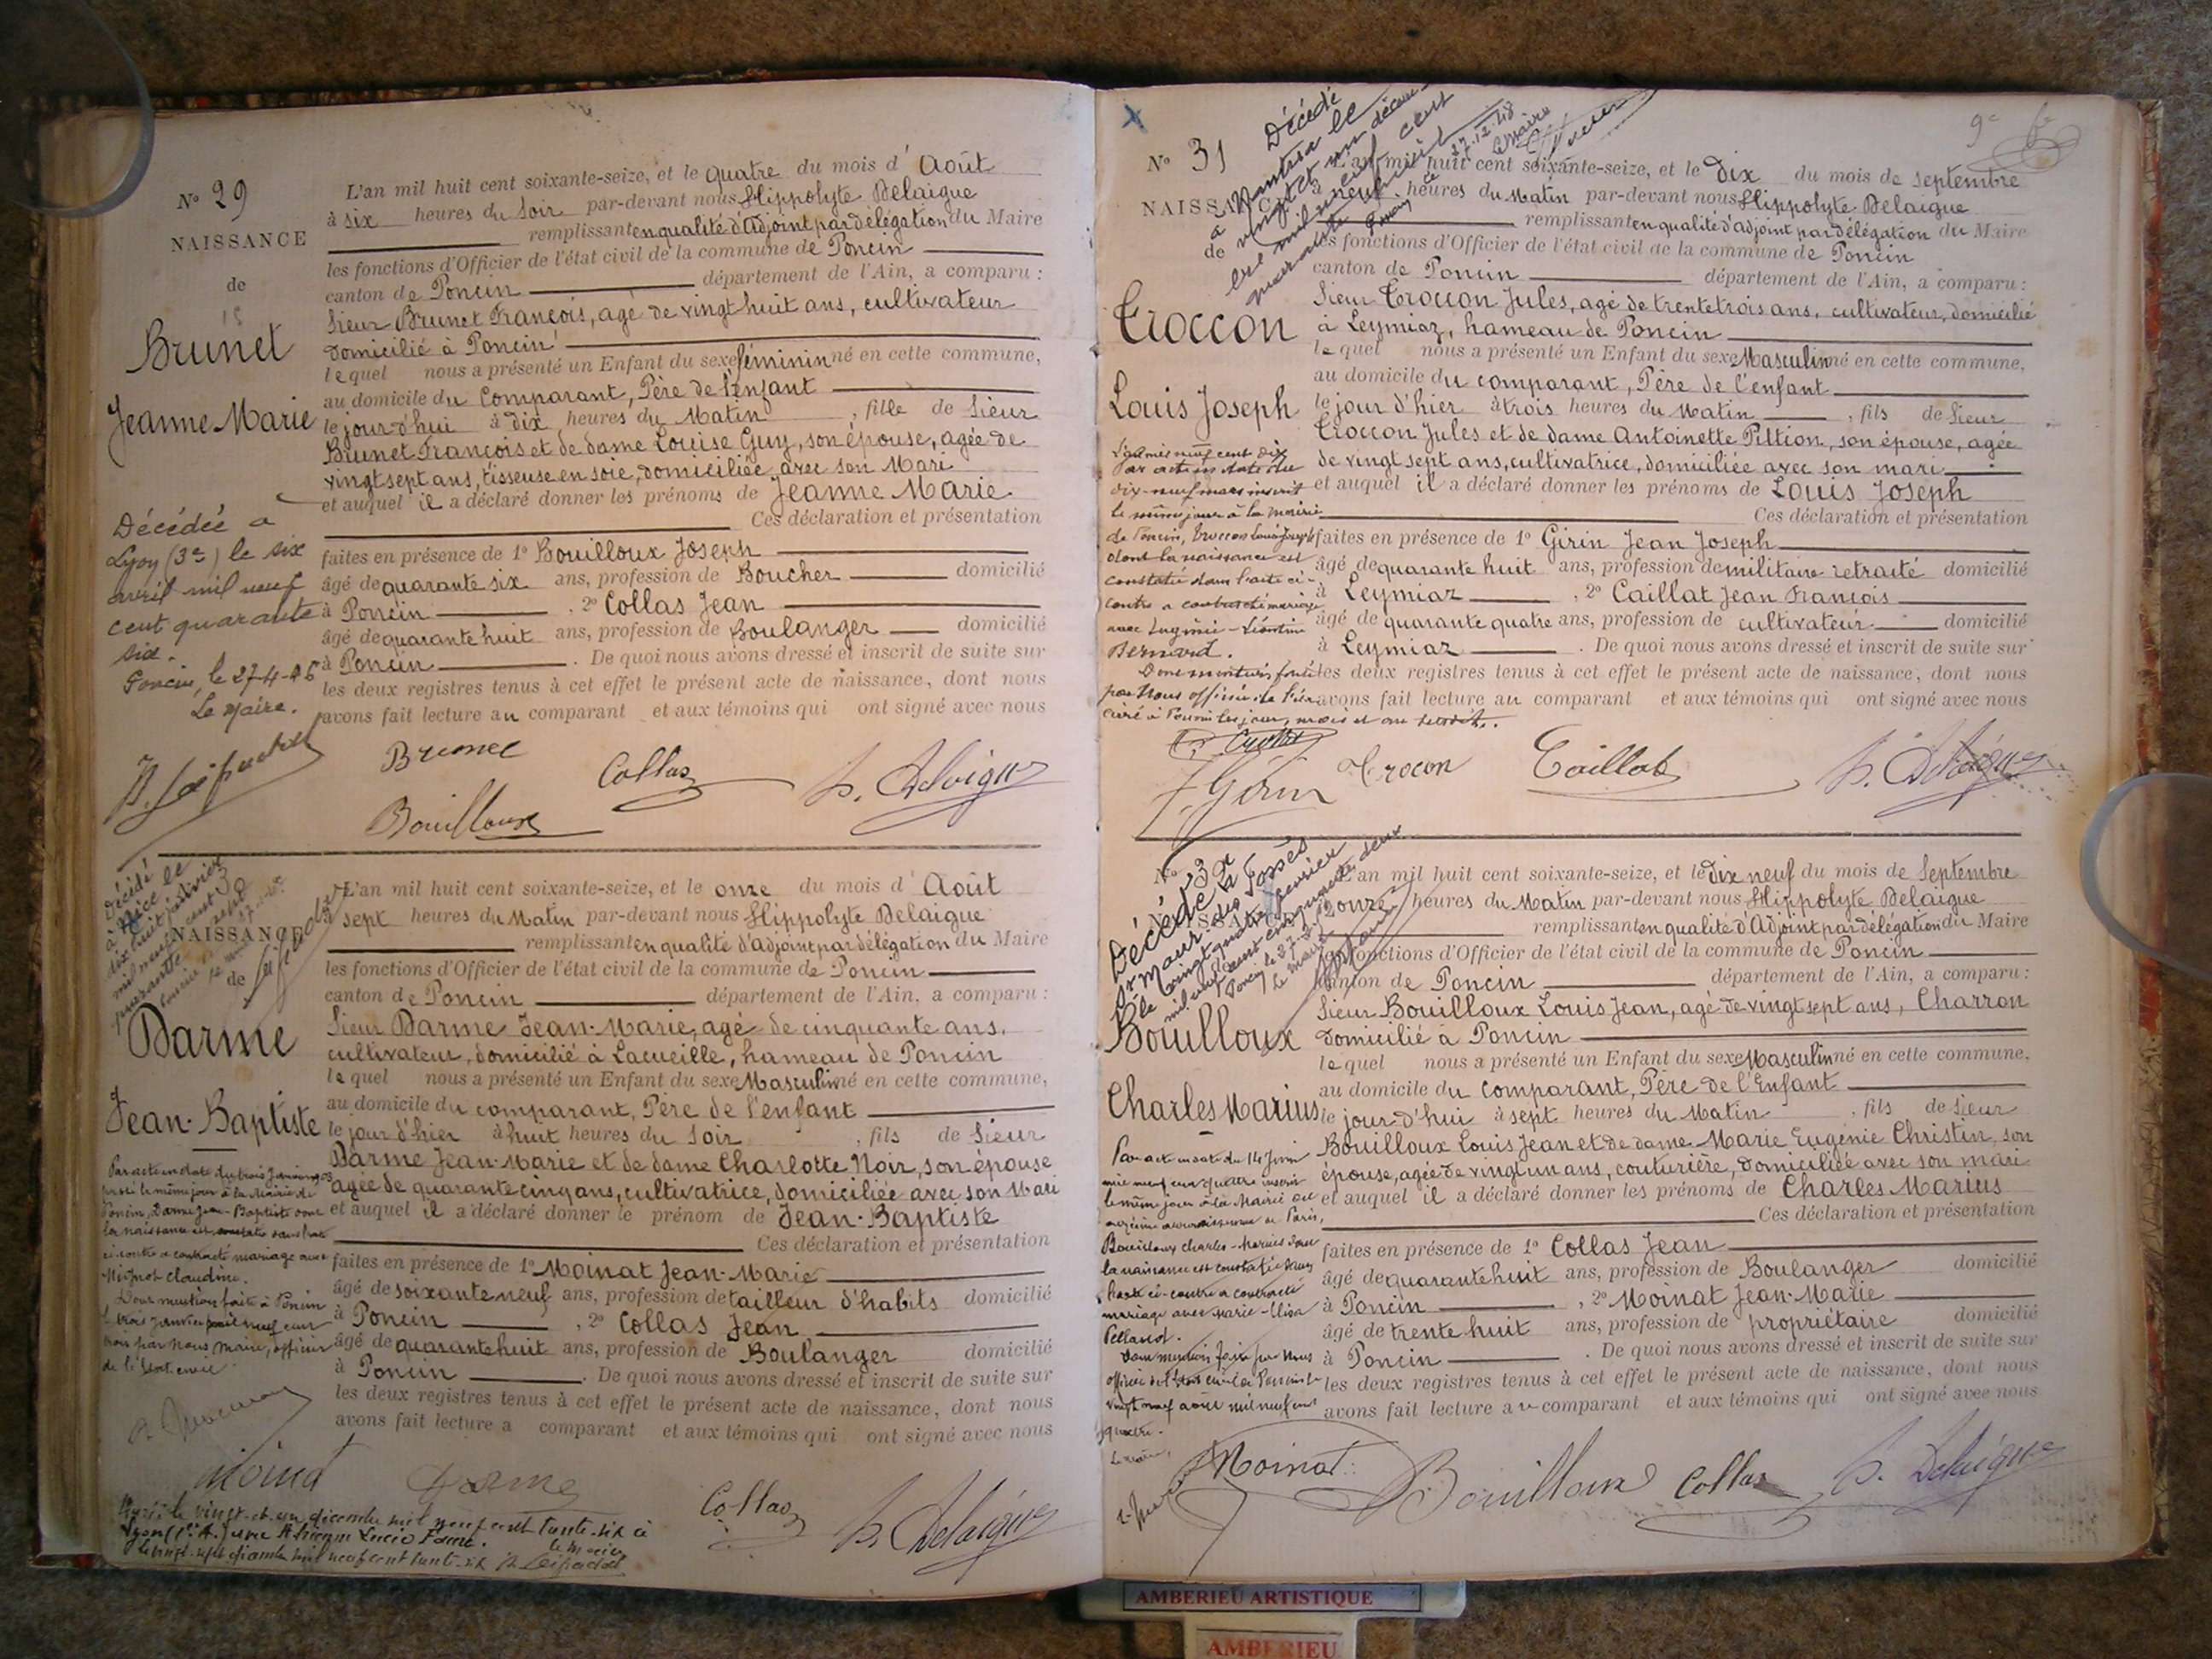 Nº 29
NAISSANCE
de
Brunet
Jeanne Marie
Décédée a
Lyon (3e) le six
avril mil neuf
cent quarante
six.
Poncin, le 27-4-46
Le Maire.
L'an mil huit cent soixante-seize, et le quatre du mois d'Août
à six heures du Soir par-devant nous Hippolyte Delaigue
remplissant en qualité d'Adjoint par délégation du Maire
les fonctions d'Officier de l'état civil de la commune de Poncin
canton de Poncin département de l'Ain, a comparu :
Sieur Brunet François, agé de vingt huit ans, cultivateur
domicilié à Poncin
lequel nous a présenté un Enfant du sexe féminin né en cette commune,
au domicile du Comparant, Père de l'enfant
le jour d'hui à dix heures du Matin, fille de Sieur
Brunet François et de dame Louise Guy, son épouse, agée de
vingt sept ans, tisseuse en soie, domiciliée avec son Mari
et auquel il a déclaré donner les prénoms de Jeanne Marie
Ces déclaration et présentation
faites en présence de 1º Bouilloux Joseph
âgé de quarante six ans, profession de Boucher domicilié
à Poncin, 2º Collas Jean
âgé de quarante huit ans, profession de Boulanger domicilié
à Poncin. De quoi nous avons dressé et inscrit de suite sur
les deux registres tenus à cet effet le présent acte de naissance, dont nous
avons fait lecture au comparant et aux témoins qui ont signé avec nous
Brunet
Collas
H. Delaigue
Bouilloux
Décédé
à Nice le
dix huit janvier
mil neuf cent
quarante sept
30
NAISSANCE
de
Darme
Jean-Baptiste
Par acte en date du trois Janvier 1903
le même jour à la Mairie de
Poncin, Darme Jean-Baptiste dont
la naissance est constatée dans l'acte
ci-contre a contracté mariage avec
Mignot Claudine.
Dont mention faite à Poncin
le trois Janvier mil neuf cent
trois par Nous Maire, officier
de l'Etat civil
L'an mil huit cent soixante-seize, et le onze du mois d'Août
à sept heures du Matin par-devant nous Hippolyte Delaigue
remplissant en qualité d'adjoint par délégation du Maire
les fonctions d'Officier de l'état civil de la commune de Poncin
canton de Poncin département de l'Ain, a comparu :
Sieur Darme Jean-Marie, agé de cinquante ans,
cultivateur, domicilié à Lacueille, hameau de Poncin
lequel nous a présenté un Enfant du sexe Masculin né en cette commune,
au domicile du comparant, Père de l'enfant
le jour d'hier à huit heures du Soir, fils de Sieur
Darme Jean-Marie et de dame Charlotte Noir, son épouse
agée de quarante cinq ans, cultivatrice, domiciliée avec son Mari
et auquel il a déclaré donner le prénom de Jean-Baptiste
Ces déclaration et présentation
faites en présence de 1º Moinat Jean-Marie
âgé de soixante neuf ans, profession de tailleur d'habits domicilié
à Poncin, 2º Collas Jean
âgé de quarante huit ans, profession de Boulanger domicilié
à Poncin. De quoi nous avons dressé et inscrit de suite sur
les deux registres tenus à cet effet le présent acte de naissance, dont nous
avons fait lecture a comparant et aux témoins qui ont signé avec nous
Moinat
Darme
Collas
H. Delaigue
le vingt-et-un décembre mil neuf cent trente-six à
Lyon
le vingt-sept décembre mil neuf cent trente-six
Le Maire
9e
Nº 31
NAISSANCE
de
Troccon
Louis Joseph
Décédé
à Nantua le
vingt et un décembre
mil neuf cent
quarante huit
27.12.48
Le Maire
L'an mil neuf cent dix
par acte en date du
dix-neuf mars inscrit
le même jour à la mairie
de Poncin, Troccon Louis Joseph
dont la naissance est
constatée dans l'acte ci-
contre a contracté mariage
avec Eugénie-Léontine
Bernard.
Dont mention faite
par Nous officier de l'état
civil à Poncin les jour, mois et an susdits.
L'an mil huit cent soixante-seize, et le Dix du mois de Septembre
à heures du Matin par-devant nous Hippolyte Delaigue
remplissant en qualité d'adjoint par délégation du Maire
les fonctions d'Officier de l'état civil de la commune de Poncin
canton de Poncin département de l'Ain, a comparu :
Sieur Troccon Jules, agé de trente trois ans, cultivateur, domicilié
à Leymiaz, hameau de Poncin
lequel nous a présenté un Enfant du sexe Masculin né en cette commune,
au domicile du comparant, Père de l'enfant
le jour d'hier à trois heures du Matin, fils de Sieur
Troccon Jules et de dame Antoinette Pittion, son épouse, agée
de vingt sept ans, cultivatrice, domiciliée avec son mari
et auquel il a déclaré donner les prénoms de Louis Joseph
Ces déclaration et présentation
faites en présence de 1º Girin Jean Joseph
âgé de quarante huit ans, profession de militaire retraité domicilié
à Leymiaz, 2º Caillat Jean François
âgé de quarante quatre ans, profession de cultivateur domicilié
à Leymiaz. De quoi nous avons dressé et inscrit de suite sur
les deux registres tenus à cet effet le présent acte de naissance, dont nous
avons fait lecture au comparant et aux témoins qui ont signé avec nous
J. Girin
Trocon
Caillat
H. Delaigue
Nº 32
Décédé à
St Maur-des Fossés
le vingt quatre février
mil neuf cent cinquante deux
Le Maire
Bouilloux
Charles Marius
Par acte en date du 14 Juin
mil neuf cent quatre inscrit
le même jour à la Mairie du
onzième arrondissement de Paris,
Bouilloux Charles-Marius dont
la naissance est constatée dans
l'acte ci-contre a contracté
mariage avec Marie-Elisa
Pelland.
Dont mention faite par Nous
officier de l'Etat civil à Poncin le
vingt neuf août mil neuf cent
quatre.
Le Maire,
L'an mil huit cent soixante-seize, et le Dix neuf du mois de Septembre
à onze heures du Matin par-devant nous Hippolyte Delaigue
remplissant en qualité d'Adjoint par délégation du Maire
les fonctions d'Officier de l'état civil de la commune de Poncin
canton de Poncin département de l'Ain, a comparu :
Sieur Bouilloux Louis Jean, agé de vingt sept ans, Charron
domicilié à Poncin
lequel nous a présenté un Enfant du sexe Masculin né en cette commune,
au domicile du comparant, Père de l'Enfant
le jour d'hui à sept heures du Matin, fils de Sieur
Bouilloux Louis Jean et de dame Marie Eugénie Christin, son
épouse, agée de vingt un ans, couturière, domiciliée avec son mari
et auquel il a déclaré donner les prénoms de Charles Marius
Ces déclaration et présentation
faites en présence de 1º Collas Jean
âgé de quarante huit ans, profession de Boulanger domicilié
à Poncin, 2º Moinat Jean-Marie
âgé de trente huit ans, profession de propriétaire domicilié
à Poncin. De quoi nous avons dressé et inscrit de suite sur
les deux registres tenus à cet effet le présent acte de naissance, dont nous
avons fait lecture au comparant et aux témoins qui ont signé avec nous
Moinat
Bouilloux
Collas
H. Delaigue
AMBERIEU ARTISTIQUE
AMBERIEU